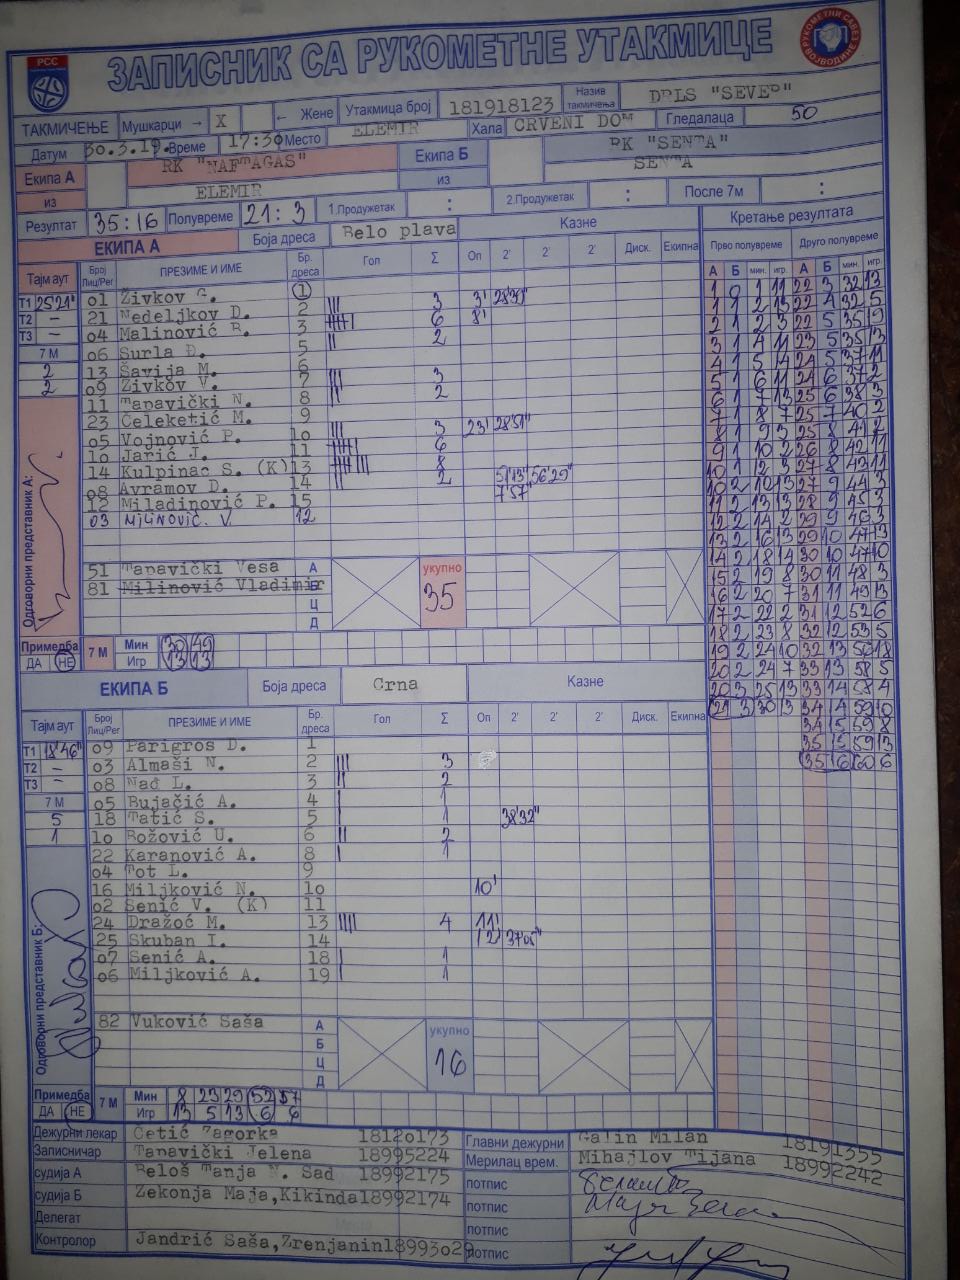 РСС
ЗАПИСНИК СА РУКОМЕТНЕ УТАКМИЦЕ
ТАКМИЧЕЊЕ Мушкарци → X ← Жене Утакмица број 181918123 Назив такмичења DRLS "SEVER"
Датум 30.3.19. Време 17:30 Место ELEMIR Хала CRVENI DOM Гледалаца 50
Екипа А RK "NAFTAGAS" Екипа Б RK "SENTA"
из ELEMIR из SENTA
Резултат 35:16 Полувреме 21:3 1.Продужетак : 2.Продужетак : После 7м :
ЕКИПА А Боја дреса Belo plava Казне Кретање резултата
Прво полувреме Друго полувреме
Тајм аут Број Лиц/Рег ПРЕЗИМЕ И ИМЕ Бр. дреса Гол Σ Оп 2' 2' 2' Диск. Екипна А Б мин. игр. А Б мин. игр.
Т1 25'21"
Т2 –
Т3 –
7 М
2
2
Одговорни представник А:
01 Živkov G. 1
21 Nedeljkov D. 2 3 3'
04 Malinović B. 3 6 8'
06 Surla D. 5 2
13 Šavija M. 6
09 Živkov V. 7 3
11 Tapavički N. 8 2
23 Čeleketić M. 9
05 Vojnović P. 10 3 23' 28'51"
10 Jarić J. 11 6
14 Kulpinac S. (K) 13 8
08 Avramov D. 14 2 51'13" 56'29"
12 Miladinović P. 15 7'57"
03 MILINOVIĆ. V. 12
51 Tapavički Vesa А
81 Milinović Vladimir Б
Ц
Д
укупно
35
Примедба ДА НЕ 7 М Мин 30 49
Игр 13 13
ЕКИПА Б Боја дреса Crna Казне
Тајм аут Број Лиц/Рег ПРЕЗИМЕ И ИМЕ Бр. дреса Гол Σ Оп 2' 2' 2' Диск. Екипна
Т1 18'46"
Т2 –
Т3 –
7 М
5
1
Одговорни представник Б:
09 Parigros D. 1
03 Almaši N. 2 3
08 Nađ L. 3 2
05 Bujačić A. 4 1
18 Tatić S. 5 1 38'32"
10 Božović U. 6 2
22 Karanović A. 8 1
04 Tot L. 9
16 Miljković N. 10 10'
02 Senić V. (K) 11
24 Dražoć M. 13 4 11'
25 Skuban I. 14 12' 37'05"
07 Senić A. 18 1
06 Miljković A. 19 1
82 Vuković Saša А
Б
Ц
Д
укупно
16
Примедба ДА НЕ 7 М Мин 8 23 29 52 57
Игр 13 5 13 6 6
1 0 1 11 22 3 32 13
1 1 2 13 22 4 32 5
2 1 2 3 22 5 35 9
3 1 4 11 23 5 35 13
4 1 5 14 24 5 37 11
5 1 6 11 24 6 37 2
6 1 7 13 25 6 38 3
7 1 8 7 25 7 40 2
8 1 9 3 25 8 41 2
9 1 10 2 26 8 42 11
10 1 12 3 27 8 43 11
10 2 12 13 27 9 44 3
11 2 13 13 28 9 45 3
12 2 14 2 29 9 46 3
13 2 16 13 29 10 47 13
14 2 18 14 30 10 47 10
15 2 19 8 30 11 48 3
16 2 20 7 31 11 49 13
17 2 22 2 31 12 52 6
18 2 23 8 32 12 53 5
19 2 24 10 32 13 56 18
20 2 24 7 33 13 58 5
20 3 25 13 33 14 58 4
21 3 30 13 34 14 59 10
34 15 59 8
35 15 59 13
35 16 60 6
Дежурни лекар Cetić Zagorka 18120173 Главни дежурни Galin Milan 18191355
Записничар Tapavički Jelena 18995224 Мерилац врем. Mihajlov Tijana 18992242
судија А Beloš Tanja N. Sad 18992175 потпис
судија Б Zekonja Maja,Kikinda 18992174 потпис
Делегат потпис
Контролор Jandrić Saša,Zrenjanin 18993029 потпис